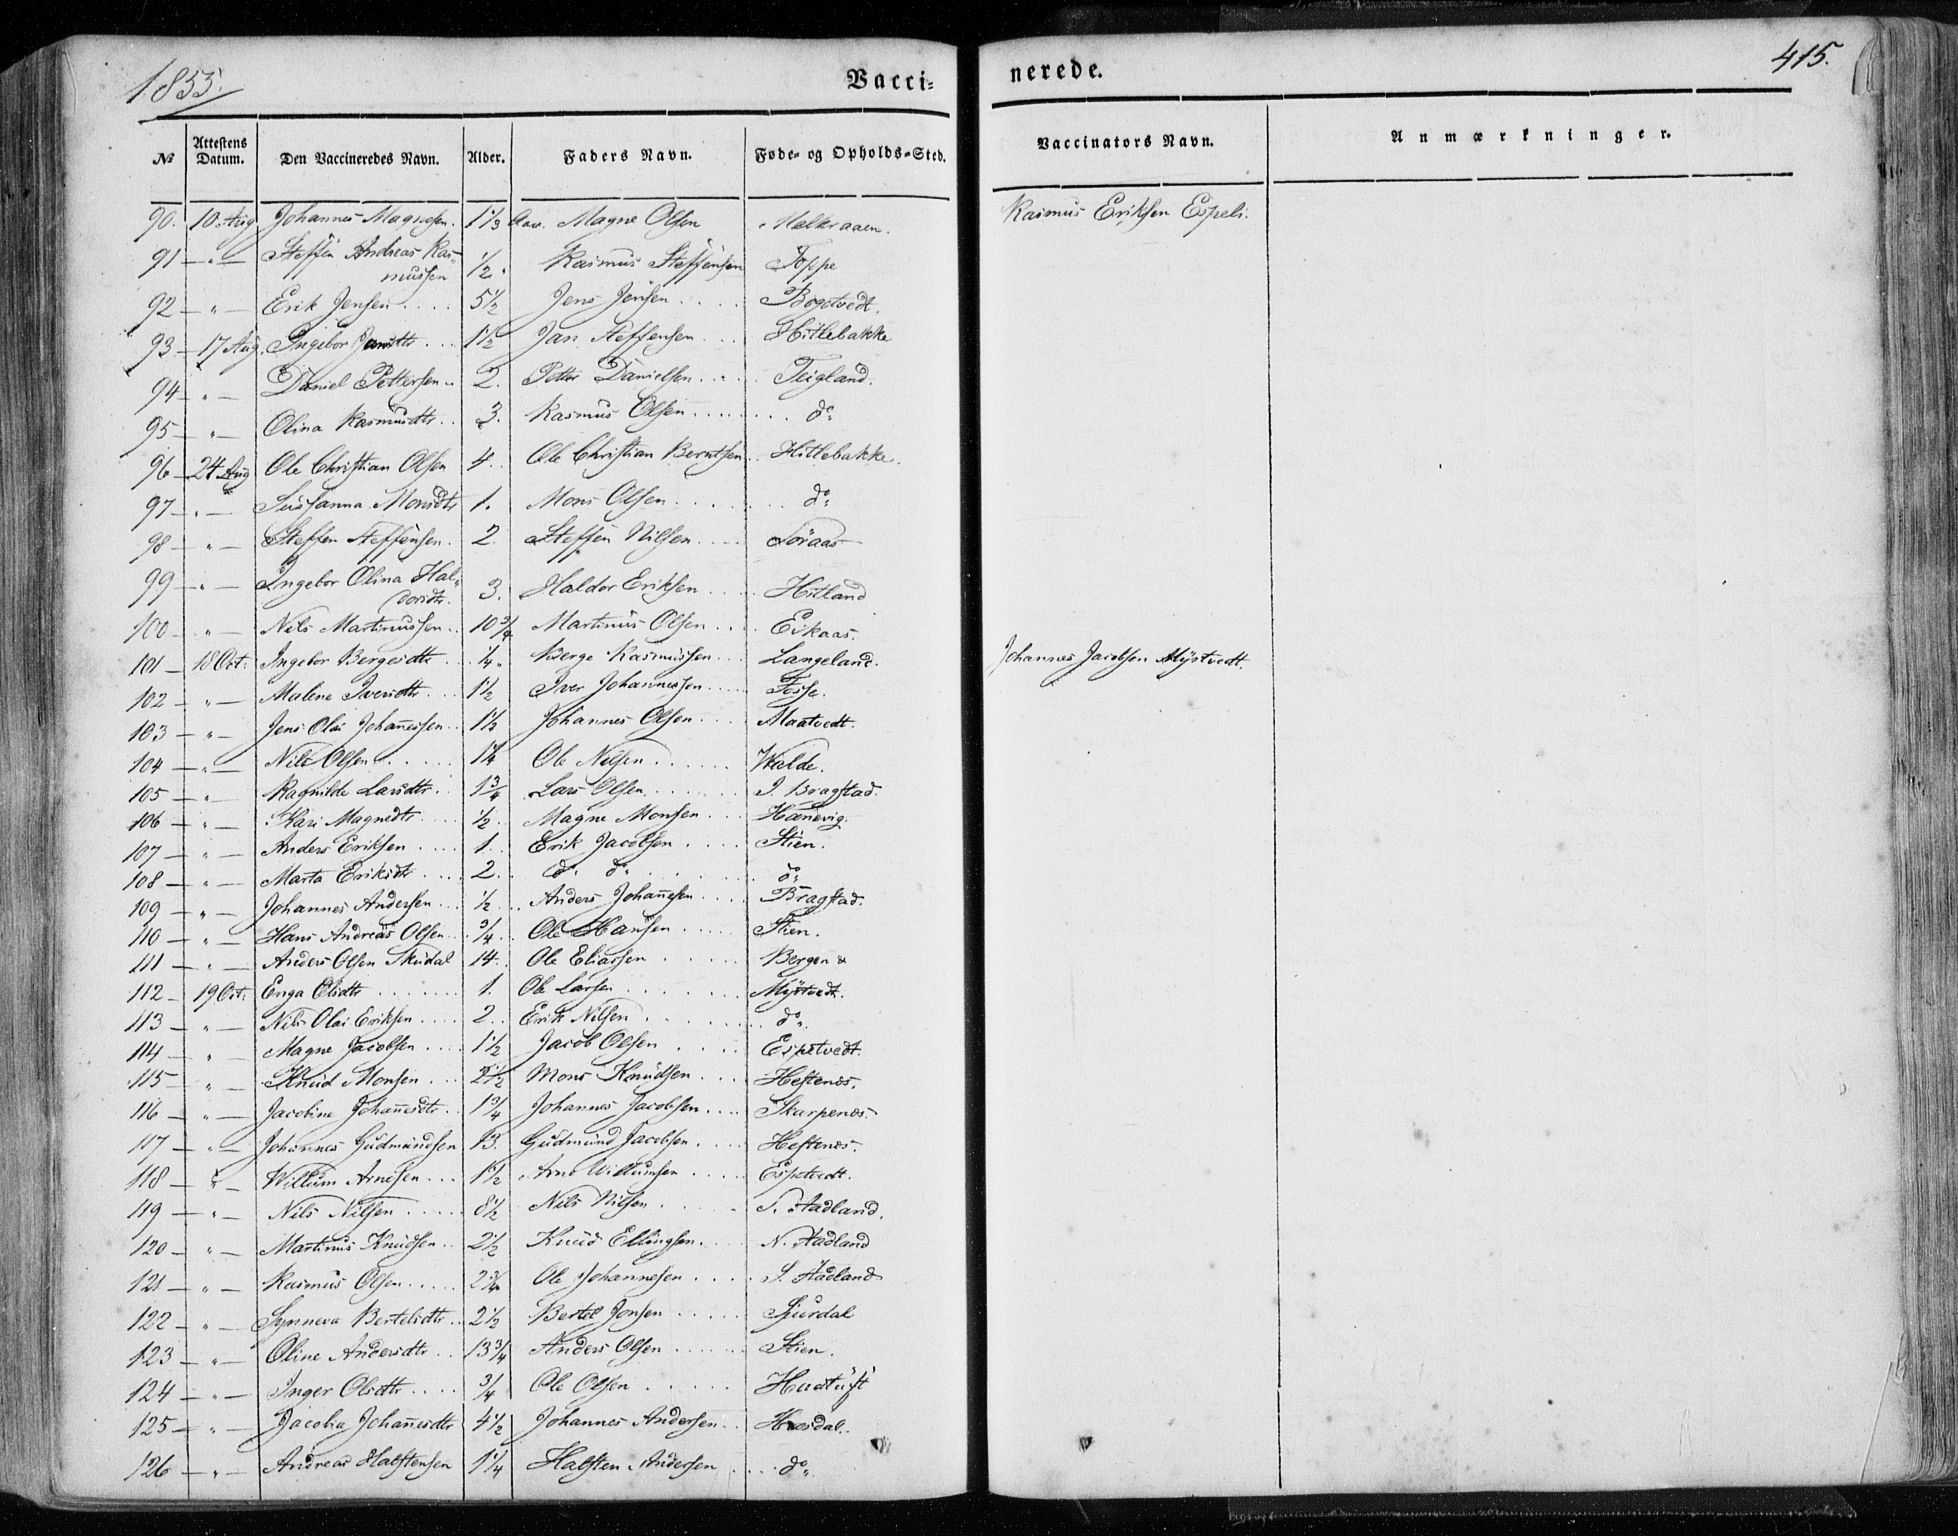 1855.
Vacci-
nerede.
415.
№ Attestens Datum. Den Vaccineredes Navn. Alder. Faders Navn. Føde- og Opholds-Sted. Vaccinators Navn. Anmærkninger.
90. 10 Aug Johannes Magnesen. 1 1/3 Aar. Magne Olsen Rasmus Eriksen Espeli.
91 — " — Steffen Andreas Ras-
mussen 1/2. Rasmus Steffensen Toppe
92 — " — Erik Jensen .... 5 1/2 Jens Jensen .... Bogetvedt.
93 — 17 Aug. Ingebor Jansdtr ... 1 1/2 Jan Steffensen ... Hitlebakke
94 — " — Daniel Pettersen .. 2. Petter Danielsen .... Teigland.
95 — " — Olina Rasmusdtr .. 3. Rasmus Olsen ....... do
96 — 24 Aug Ole Christian Olsen 4. Ole Christian Berntsen .. Hitlebakke.
97 — " — Susanna Monsdtr 1. Mons Olsen ...... do
98 — " — Steffen Steffensen. 2. Steffen Nilsen .... Söraas
99 — " — Ingebor Olina Hal-
dorsdtr. 3. Haldor Eriksen .... Hitland
100 — " — Nils Martinussen .. 10 3/4 Martinus Olsen .... Eikaas.
101 — 18 Oct. Ingebor Bergesdtr .. 1/4. Berge Rasmussen ... Langeland. Johannes Jacobsen Mystvedt.
102 — " — Malene Iversdtr ... 1 1/2 Iver Johannessen .... Fosse.
103 — " — Jens Olai Johan̄essen .. 1 1/2 Johannes Olsen .... Maatvedt.
104 — " — Nils Olsen .... 1 1/4 Ole Nilsen ...... Walde.
105 — " — Ragnilde Larsdtr . 1 3/4 Lars Olsen ...... I. Bragstad.
106 — " — Kari Magnedtr .... 1/2 .. Magne Monsen ... Hanevig.
107 — " — Anders Eriksen .... 1. Erik Jacobsen .... Stien.
108 — " — Marta Eriksdtr .... 2. do do ...... do
109 — " — Johannes Andersen .. 1/2 .. Anders Johan̄esen .... Bragstad.
110 — " — Hans Andreas Olsen .. 3/4 .. Ole Hansen ..... Stien.
111 — " — Anders Olsen Skudal 14. Ole Eliassen ..... Bergen
112 — 19 Oct. Enga Olsdtr ...... 1. Ole Larsen ...... Mystvedt.
113 — " — Nils Olai Eriksen .... 2. Erik Nilsen ....... do
114 — " — Magne Jacobsen .... 1 1/2 Jacob Olsen .... Espetvedt.
115 — " — Knud Monsen ... 2 1/2 Mons Knudsen .... Heftenes.
116 — " — Jacobine Johan̄esdtr .. 1 3/4 Johannes Jacobsen .... Skarpenes.
117 — " — Johannes Gudmundsen 13. Gudmund Jacobsen .... Heftenes.
118 — " — Willum Arnesen ... 1 1/2 Arne Willumsen .... Espetvedt.
119 — " — Nils Nilsen ..... 8 1/2 Nils Nilsen ..... S. Aadland.
120 — " — Martinus Knudsen .. 2 1/2 Knud Ellingsen .... N. Aadland
121 — " — Rasmus Olsen ..... 2 3/4 Ole Johannesen ..... S. Aadland
122 — " — Synneva Bertelsdtr .. 2 1/2 Bertel Jonsen ..... Sjurdal
123 — " — Oline Andersdtr .. 13 3/4 Anders Olsen ...... Stien.
124 — " — Inger Olsdtr .... 3/4 Ole Olsen ......
125 — " — Jacoba Johan̄esdtr 4 1/2 Johannes Andersen .. Hæsdal.
126 — " — Andreas Halstensen 1 1/4 Halsten Andersen ..... do